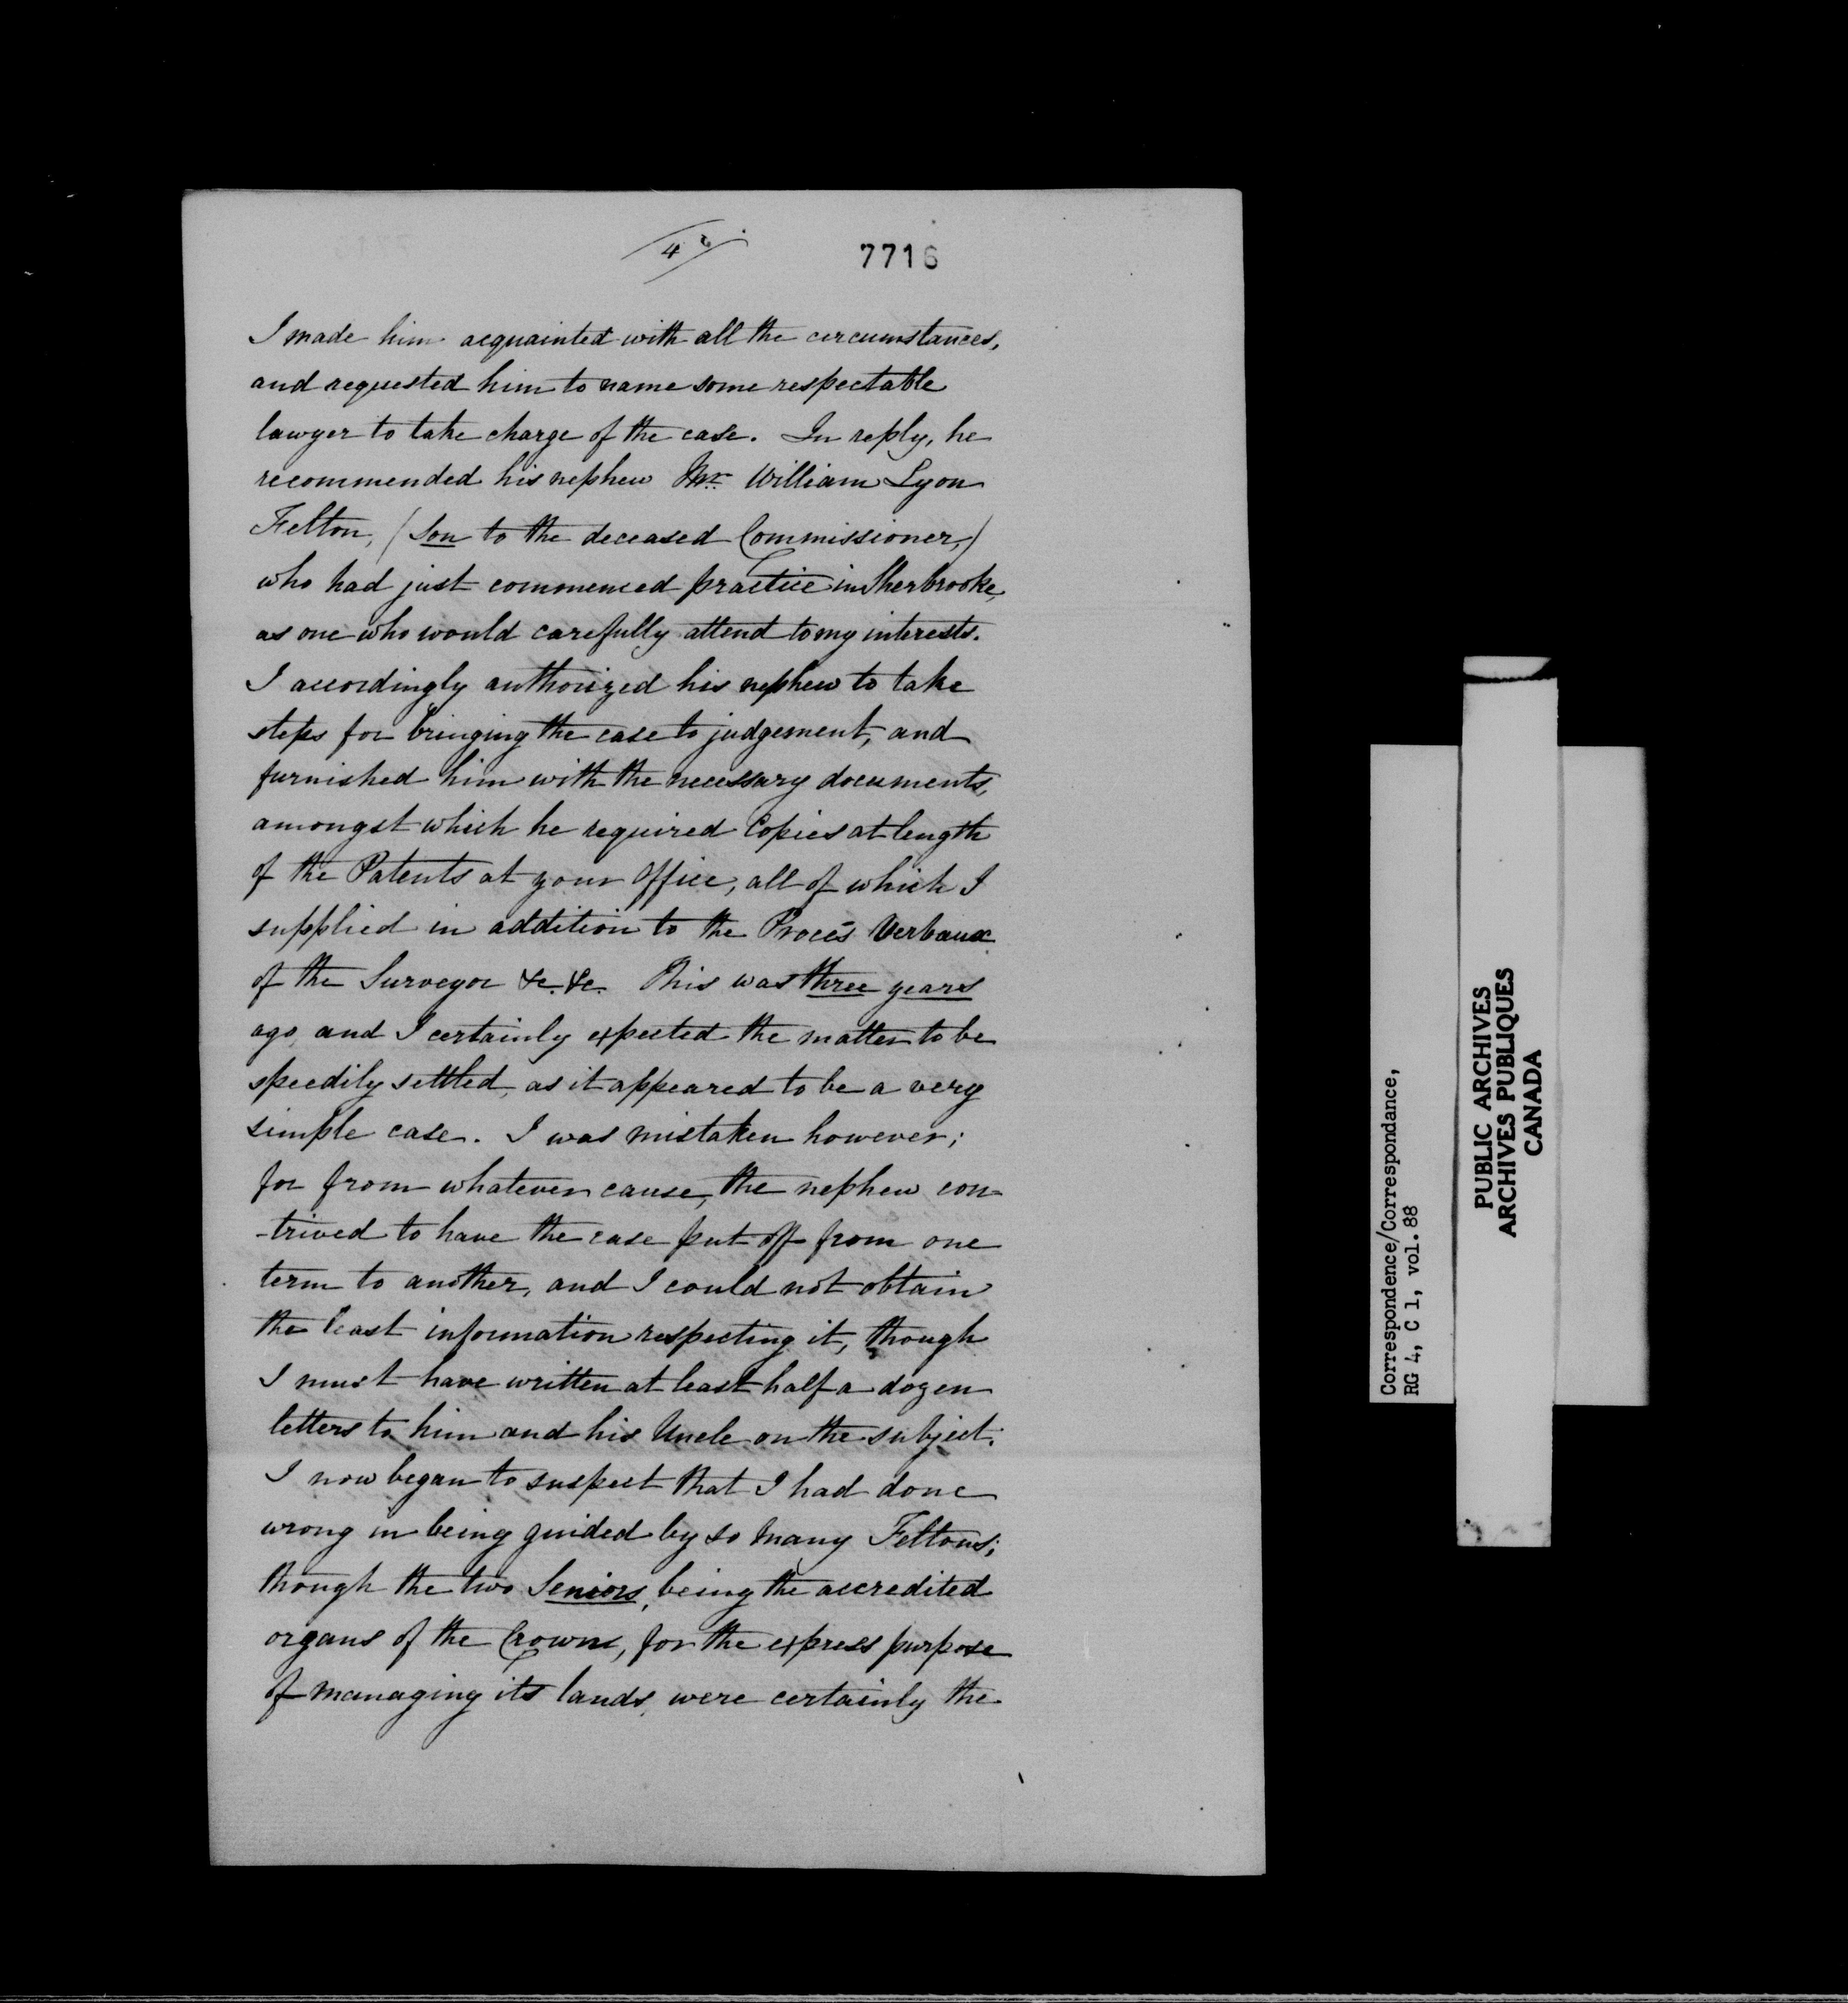 4
7716
I made him acquainted with all the circumstances,
and requested him to name some respectable
lawyer to take charge of the case. In reply, he
recommended his nephew Mr. William Lyon
Felton, (Son to the deceased Commissioner,)
who had just commenced practice in Sherbrooke,
as one who would carefully attend to my interests.
I accordingly authorized his nephew to take
steps for bringing the case to judgement, and
furnished him with the necessary documents,
amongst which he required Copies at length
of the Patents at your Office, all of which I
supplied in addition to the Procès Verbaux
of the Surveyor &c. &c. This was three years
ago, and I certainly expected the matter to be
speedily settled, as it appeared to be a very
simple case. I was mistaken however;
for from whatever cause, the nephew con-
-trived to have the case put off from one
term to another, and I could not obtain
the least information respecting it, though
I must have written at least half a dozen
letters to him and his Uncle on the subject.
I now began to suspect that I had done
wrong in being guided by so many Feltons;
though the two Seniors, being the accredited
organs of the Crown, for the express purpose
of managing its lands, were certainly the
Correspondence/Correspondance,
RG 4, C 1, vol. 88
PUBLIC ARCHIVES
ARCHIVES PUBLIQUES
CANADA